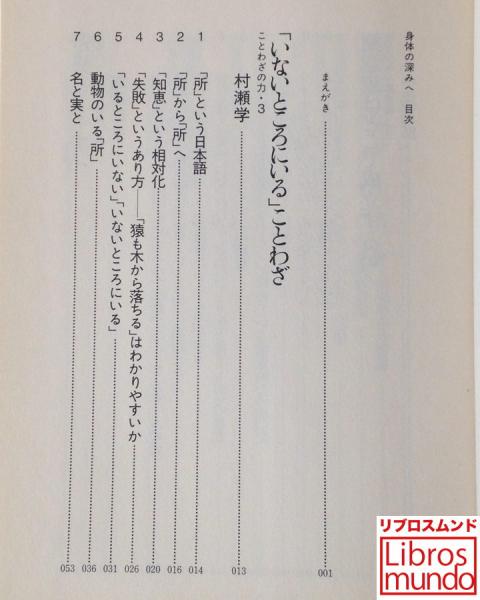 身体の深みへ 目次
まえがき 001
「いないところにいる」ことわざ
ことわざの力・3
村瀬学 013
1 「所」という日本語 014
2 「所」から「所」へ 016
3 「知恵」という相対化 020
4 「失敗」というあり方――「猿も木から落ちる」はわかりやすいか 026
5 「いるところにいない」「いないところにいる」 031
6 動物のいる「所」 036
7 名と実と 053
リブロスムンド
Libros
mundo